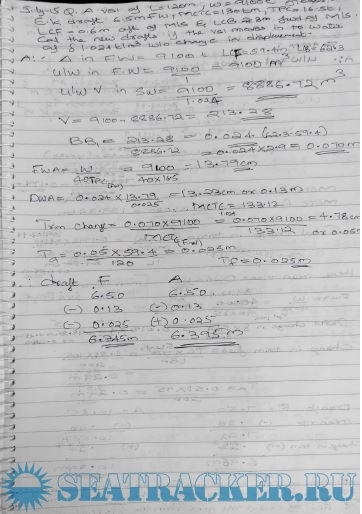 July 15 Q. A vsl of L=120m, W=9100t
E.K draft 6.5m S FW, MCTC=130tm, TPC=16.5t,
LCF = 0.6m aft of M/S & LCB 2.3m fwd of M/S.
Cal the new drafts if the vsl moves into water
of ρ 1.024 t/m³ w/o change in displacement.
A:- Δ in FW = 9100 t LCF=59.4m LCB=62.3
u/w in F.W = 9100/1 = 9100m³
u/w V in SW = 9100/1.024 = 8886.72 m³
V = 9100 - 8886.72 = 213.28
BB₁ = 213.28/8886.72 = 0.024(62.3-59.4)
= 0.024x2.9 = 0.070m
FWA = W/40TPC = 9100/40x16.5 = 13.79cm
DWA = 0.024x13.79/0.025 = 13.23cm or 0.13m
MCTC = 133.12
Trim change = 0.070x9100/MCTC = 0.070x9100/133.12 = 4.78cm
or 0.05
Ta = 0.05x59.4/120 = 0.025m Tf = 0.025m
∴ draft F A
6.50 6.50
(-) 0.13 (-) 0.13
(-) 0.025 (+) 0.025
6.345m 6.395m
SEATRACKER.RU